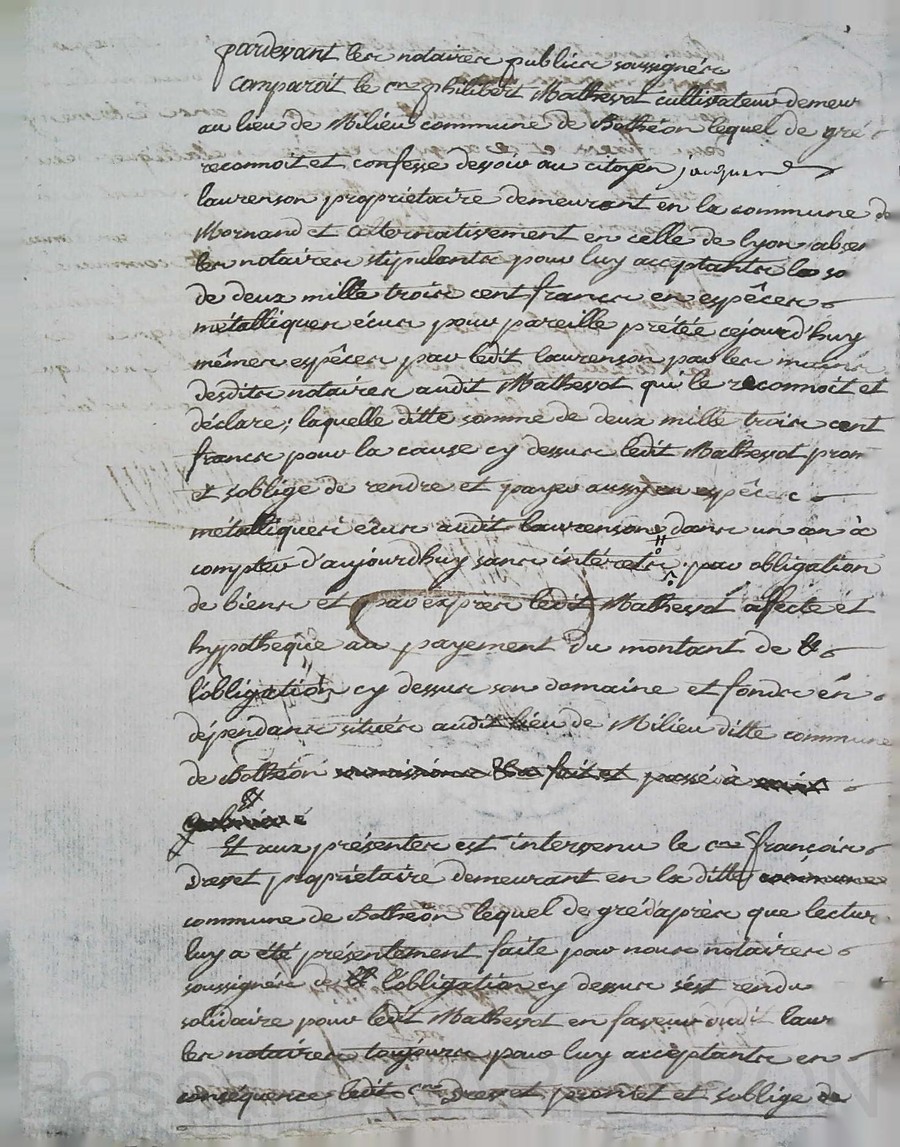 pardevant les notaires publics soussignés
comparoit le cen philibert Mathevot cultivateur demeur
au lieu de Milieu commune de Bothéon lequel de gré
reconnoit et confesse devoir au citoyen
laurenson propriétaire demeurant en la commune de
Mornand et alternativement en celle de lyon absen
les notaires stipulants pour luy acceptants la so
de deux mille trois cent francs en espêces
métalliques écus pour pareille prétée cejourd'huy
mêmes espêces par ledit laurenson par les mains
desdits notaires audit Mathevot qui le reconnoit et
déclare; laquelle ditte somme de deux mille trois cent
francs pour la cause cy dessus ledit Mathevot prom
et soblige de rendre et payer aussy en espêces
métalliques écus audit laurenson dans un an à
compter d'aujourdhuy sans intérets par obligation
de biens et par exprès ledit Mathevot affecte et
hypotheque au payement du montant de
l'obligation cy dessus son domaine et fonds en
dépendants situés audit lieu de Milieu ditte commune
de Bothéon fait et passé à
Et aux présentes est intervenu le cen françois
Drevet propriétaire demeurant en la ditte commune
commune de Bothéon lequel de gré d'après que lectur
luy a été présentement faite par nous notaires
soussignés de l'obligation cy dessus s'est rendu
solidaire pour ledit Mathevot en faveur dudit laur
les notaires toujours pour luy acceptants en
conséquence ledit cen Drevet promet et soblige de